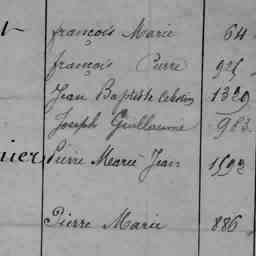 françois Marie 64
françois Pierre 925
Jean Baptiste 1329
Joseph Guillaume 963
Pierre Marie Jean 1592
Pierre Marie 886